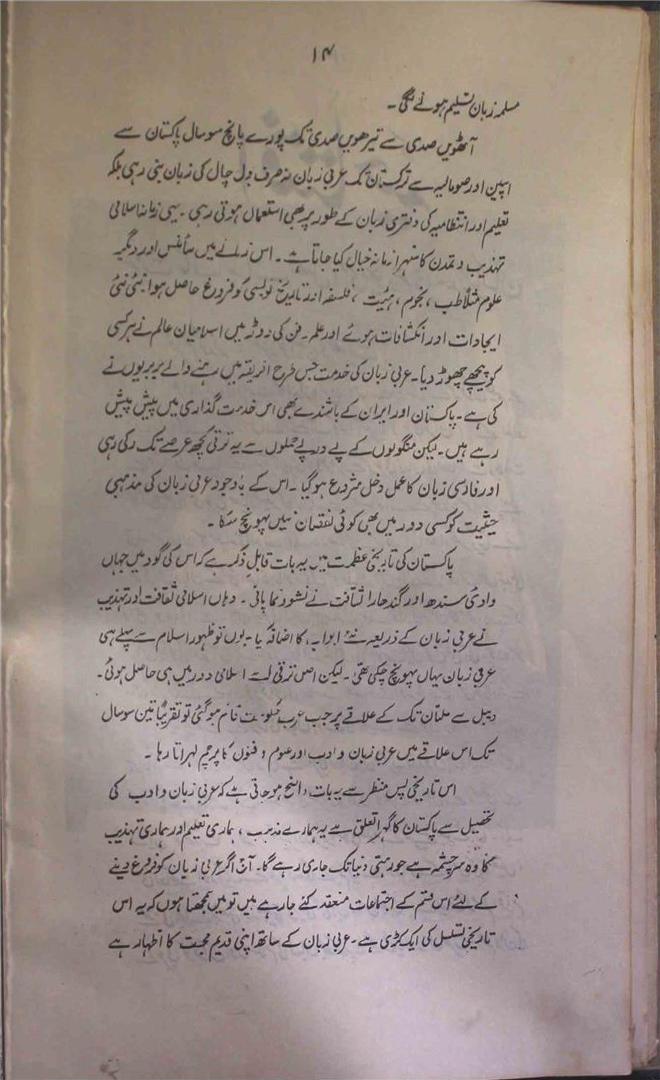 ۱۴
مسلمہ زبان تسلیم ہونے لگی ۔
آٹھویں صدی سے تیرھویں صدی تک پورے پانچ سو سال پاکستان سے
اسپین اور صومالیہ سے ترکستان تک عربی زبان نہ صرف بول چال کی زبان بنی رہی بلکہ
تعلیم اور انتظامیہ کی دفتری زبان کے طور پر بھی استعمال ہوتی رہی ۔ یہی زمانہ اسلامی
تہذیب و تمدن کا سنہرا زمانہ خیال کیا جاتا ہے ۔ اس زمانے میں سائنس اور دیگر
علوم مثلاً طب ، نجوم ، ہیئت ، فلسفہ اور تاریخ نویسی کو فروغ حاصل ہوا نئی نئی
ایجادات اور انکشافات ہوئے اور علم و فن کی دوڑ میں اسلامیان عالم نے ہر کسی
کو پیچھے چھوڑ دیا ۔ عربی زبان کی خدمت جس طرح افریقہ میں رہنے والے بربریوں نے
کی ہے ۔ پاکستان اور ایران کے باشندے بھی اس خدمت گذاری میں پیش پیش
رہے ہیں ۔ لیکن منگولوں کے پے در پے حملوں سے یہ ترقی کچھ عرصے تک رکی رہی
اور فارسی زبان کا عمل دخل شروع ہو گیا ۔ اس کے باوجود عربی زبان کی مذہبی
حیثیت کو کسی دور میں بھی کوئی نقصان نہیں پہونچ سکا ۔
پاکستان کی تاریخی عظمت میں یہ بات قابل ذکر ہے کہ اس کی گود میں جہاں
وادیٔ سندھ اور گندھارا ثقافت نے نشوونما پائی ۔ وہاں اسلامی ثقافت اور تہذیب
نے عربی زبان کے ذریعہ نئے ابواب کا اضافہ کیا ۔ یوں تو ظہور اسلام سے پہلے ہی
عربی زبان یہاں پہونچ چکی تھی ۔ لیکن اصل ترقی اسے اسلامی دور میں ہی حاصل ہوئی ۔
دیبل سے ملتان تک کے علاقے پر جب عرب حکومت قائم ہو گئی تو تقریباً تین سو سال
تک اس علاقے میں عربی زبان و ادب اور علوم و فنون کا پرچم لہراتا رہا ۔
اس تاریخی پس منظر سے یہ بات واضح ہو جاتی ہے کہ عربی زبان و ادب کی
تحصیل سے پاکستان کا گہرا تعلق ہے یہ ہمارے مذہب ، ہماری تعلیم اور ہماری تہذیب
کا وہ سرچشمہ ہے جو رہتی دنیا تک جاری رہے گا ۔ آج اگر عربی زبان کو فروغ دینے
کے لئے اس قسم کے اجتماعات منعقد کئے جا رہے ہیں تو میں سمجھتا ہوں کہ یہ اس
تاریخی تسلسل کی ایک کڑی ہے ۔ عربی زبان کے ساتھ اپنی قدیم محبت کا اظہار ہے